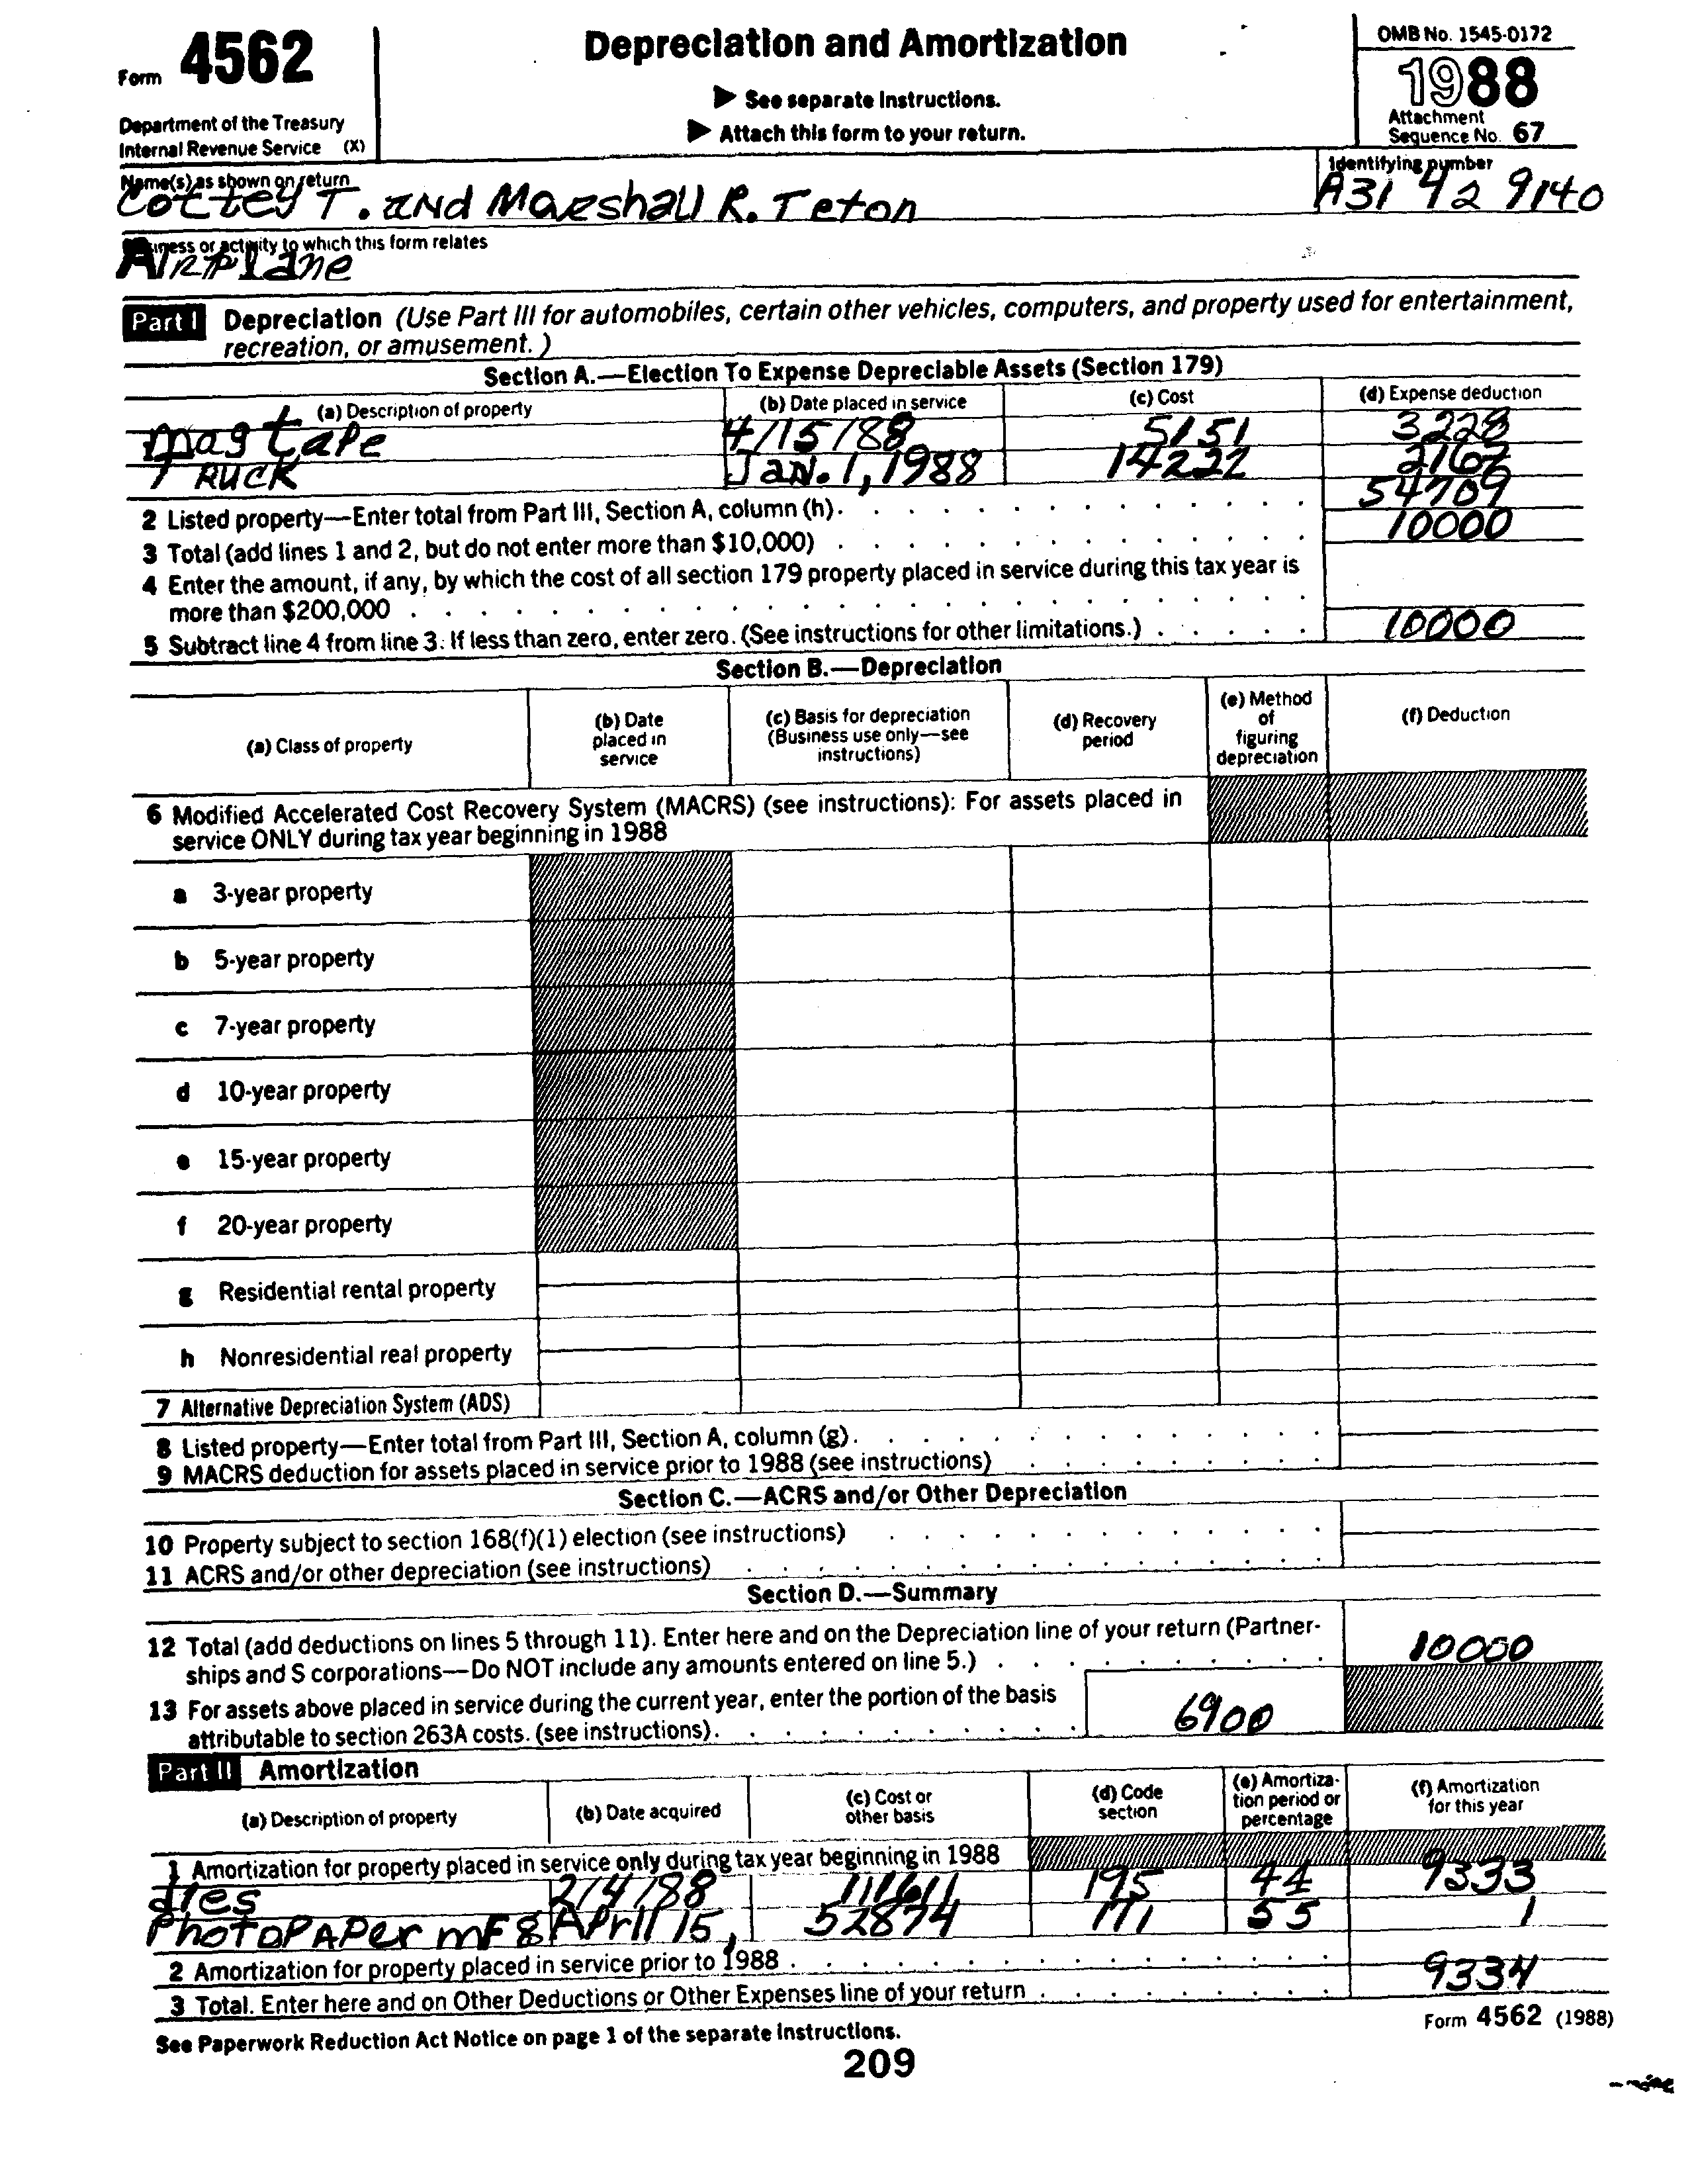 Form 4562
Department of the Treasury
Internal Revenue Service (X)
Depreciation and Amortization
▶ See separate Instructions.
▶ Attach this form to your return.
OMB No. 1545-0172
1988
Attachment
Sequence No. 67
Name(s) as shown on return
Cottey T. and Marshall R. Teton
Identifying number
A31 42 9140
Business or activity to which this form relates
Airplane
Part I Depreciation (Use Part III for automobiles, certain other vehicles, computers, and property used for entertainment,
recreation, or amusement.)
Section A.—Election To Expense Depreciable Assets (Section 179)
(a) Description of property (b) Date placed in service (c) Cost (d) Expense deduction
1 mag tape 4/15/88 5151 3228
TRUCK Jan. 1, 1988 14222 2162
2 Listed property—Enter total from Part III, Section A, column (h). 54709
3 Total (add lines 1 and 2, but do not enter more than $10,000) 10000
4 Enter the amount, if any, by which the cost of all section 179 property placed in service during this tax year is
more than $200,000
5 Subtract line 4 from line 3. If less than zero, enter zero. (See instructions for other limitations.) 10000
Section B.—Depreciation
(a) Class of property (b) Date placed in service (c) Basis for depreciation (Business use only—see instructions) (d) Recovery period (e) Method of figuring depreciation (f) Deduction
6 Modified Accelerated Cost Recovery System (MACRS) (see instructions): For assets placed in
service ONLY during tax year beginning in 1988
a 3-year property
b 5-year property
c 7-year property
d 10-year property
e 15-year property
f 20-year property
g Residential rental property
h Nonresidential real property
7 Alternative Depreciation System (ADS)
8 Listed property—Enter total from Part III, Section A, column (g).
9 MACRS deduction for assets placed in service prior to 1988 (see instructions)
Section C.—ACRS and/or Other Depreciation
10 Property subject to section 168(f)(1) election (see instructions)
11 ACRS and/or other depreciation (see instructions)
Section D.—Summary
12 Total (add deductions on lines 5 through 11). Enter here and on the Depreciation line of your return (Partner-
ships and S corporations—Do NOT include any amounts entered on line 5.) 10000
13 For assets above placed in service during the current year, enter the portion of the basis
attributable to section 263A costs. (see instructions). 6900
Part II Amortization
(a) Description of property (b) Date acquired (c) Cost or other basis (d) Code section (e) Amortization period or percentage (f) Amortization for this year
1 Amortization for property placed in service only during tax year beginning in 1988
dies 2/4/88 111611 195 44 9333
PhotoPaper mF8 April 15, 52874 171 55 1
2 Amortization for property placed in service prior to 1988
3 Total. Enter here and on Other Deductions or Other Expenses line of your return 9334
See Paperwork Reduction Act Notice on page 1 of the separate instructions.
Form 4562 (1988)
209